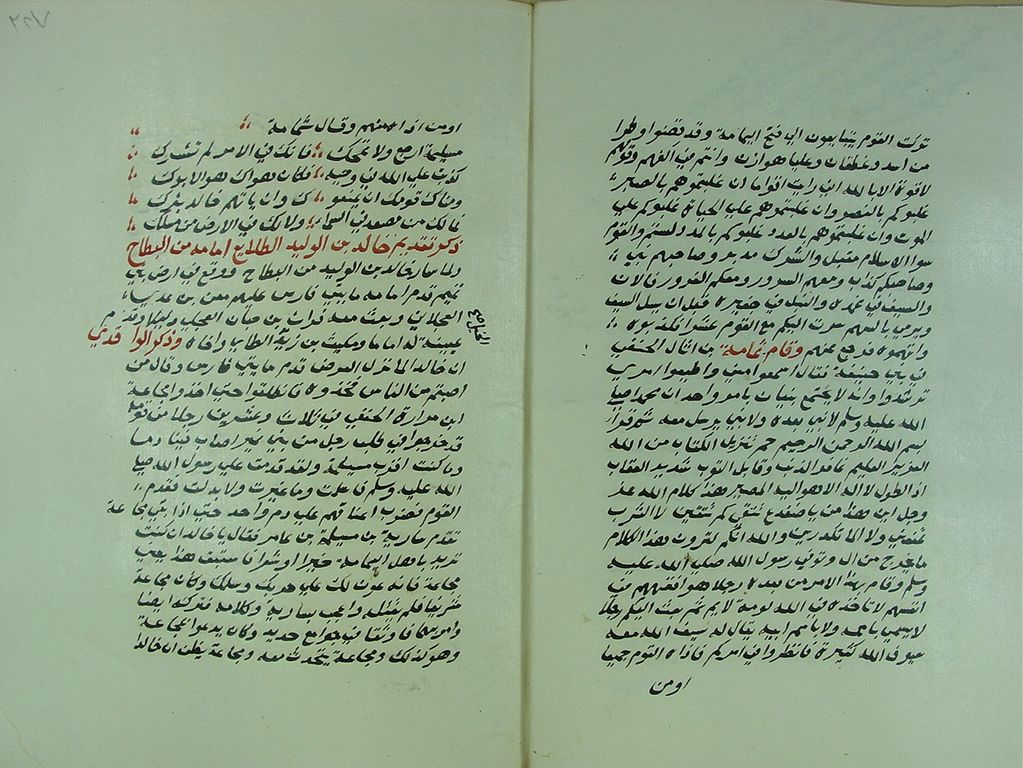 تركت القوم يتبايعون الي فتح اليمامة وقد قضوا وطرا
من اسد وغطفان وعليا هوازن وانتم في اكفهم وقولهم
لا قوة الا بالله اني رايت اقواما ان غلبتموهم بالصبر
غلبوكم بالنصر وان غلبتموهم علي الحياة غلبوكم علي
الموت وان غلبتموهم بالعدد غلبوكم بالمدد لستم والقوم
سوا الاسلام مقبل والشرك مدبر وصاحبهم نبي
وصاحبكم كذاب ومعهم السرور ومعكم الغرور فالان
والسيف في غمده والنبل في جفيره قبل ان يسل السيف
ويرمي بالسهم سرت اليكم مع القوم عشرا فكذبوه
واتهموه فرجع عنهم وقام ثمامة بن اثال الحنفي
في بني حنيفة فقال اسمعوا مني واطيعوا امري
ترشدوا وانه لا يجتمع نبيان بامر واحد ان محمدا صلي
الله عليه وسلم لا نبي بعده ولا نبي يرسل معه ثم قرا
بسم الله الرحمن الرحيم حم تنزيل الكتاب من الله
العزيز العليم غافر الذنب وقابل التوب شديد العقاب
ذا الطول لا اله الا هو اليه المصير هذا كلام الله عز
وجل اين هذا من يا ضفدع نقي كم تنقين لا الشرب
تمنعي ولا الما تكدرين والله انكم لترون هذا الكلام
ما يخرج من ال وتوفي رسول الله صلي الله عليه
وسلم وقام بهذا الامر من بعده رجل هو افقههم في
انفسهم لا تاخذه في الله لومة لايم ثم بعث اليكم رجلا
لا يسمي باسمه ولا باسم ابيه يقال له سيف الله معه
سيوف الله كثيرة فانظروا في امركم فاذاه القوم جميعا
او من
او من اذاه منهم وقال ثمامة
مسيلمة ارجع ولا تمحك فانك في الامر لم تشرك
كذبت علي الله في وحيه فكان هواك هوا لانوك
ومناك قومك ان يمنعو ك وان ياتهم خالد تترك
فما لك من مصعد في السما ولا لك في الارض من مسلك
ذكر تقديم خالد بن الوليد الطلايع امامه من البطاح
ولما سار خالد بن الوليد من البطاح ووقع في ارض بني
تميم قدم امامه مايتي فارس عليهم معن بن عدي
العجلاني وبعث معه فرات بن حيان العجلي دليلا وقدم
الخيل
عيينين له امامه مكنف بن زيد الطايي واخاه وذكر الواقدي
ان خالد لما نزل العرض قدم مايتي فارس وقال من
اصبتم من الناس فخذوه فانطلقوا حتي اخذوا مجاعة
ابن مرارة الحنفي في ثلاث وعشرين رجلا من قومه
قد خرجوا في طلب رجل من بني نمير اصاب فينا دما
وما كنت اقرب مسيلمة ولقد قدمت علي رسول الله صلي
الله عليه وسلم فاسلمت وما غيرت ولا بدلت فقدم
القوم فضرب اعناقهم علي دم واحد حتي اذا بقي مجاعة
تقدم سارية بن مسيلمة بن عامر فقال يا خالد ان كنت
تريد باهل اليمامة خيرا او شرا فاستبق هذا يعني
مجاعة فانه عون لك علي حربك وسلمك وكان مجاعة
شريفا فلم يقتله واعجب بسارية وكلامه فتركه ايضا
وامر بهما فاوثقا في جوامع حديد وكان يدعوا مجاعة
وهو كذلك ومجاعة يتحدث معه ومجاعة يظن ان خالدا